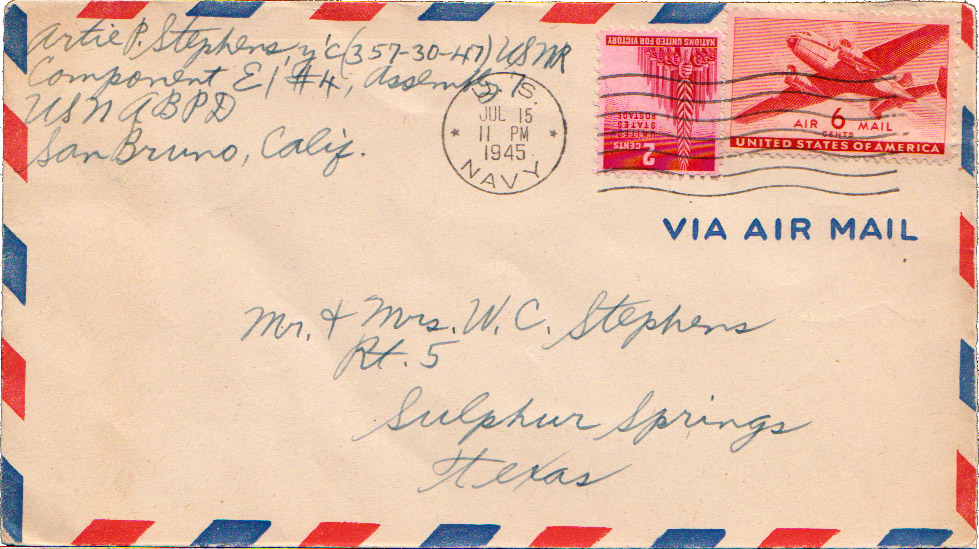 Artie P. Stephens Y/c (357-30-47) USNR
Component E1 #4, Assembly
USN ABPD
San Bruno, Calif.
U.S.
JUL 15
11 PM
1945
NAVY
NATIONS UNITED FOR VICTORY
UNITED STATES POSTAGE
2 CENTS
AIR 6 MAIL
CENTS
UNITED STATES OF AMERICA
VIA AIR MAIL
Mr. & Mrs. W. C. Stephens
Rt. 5
Sulphur Springs
Texas